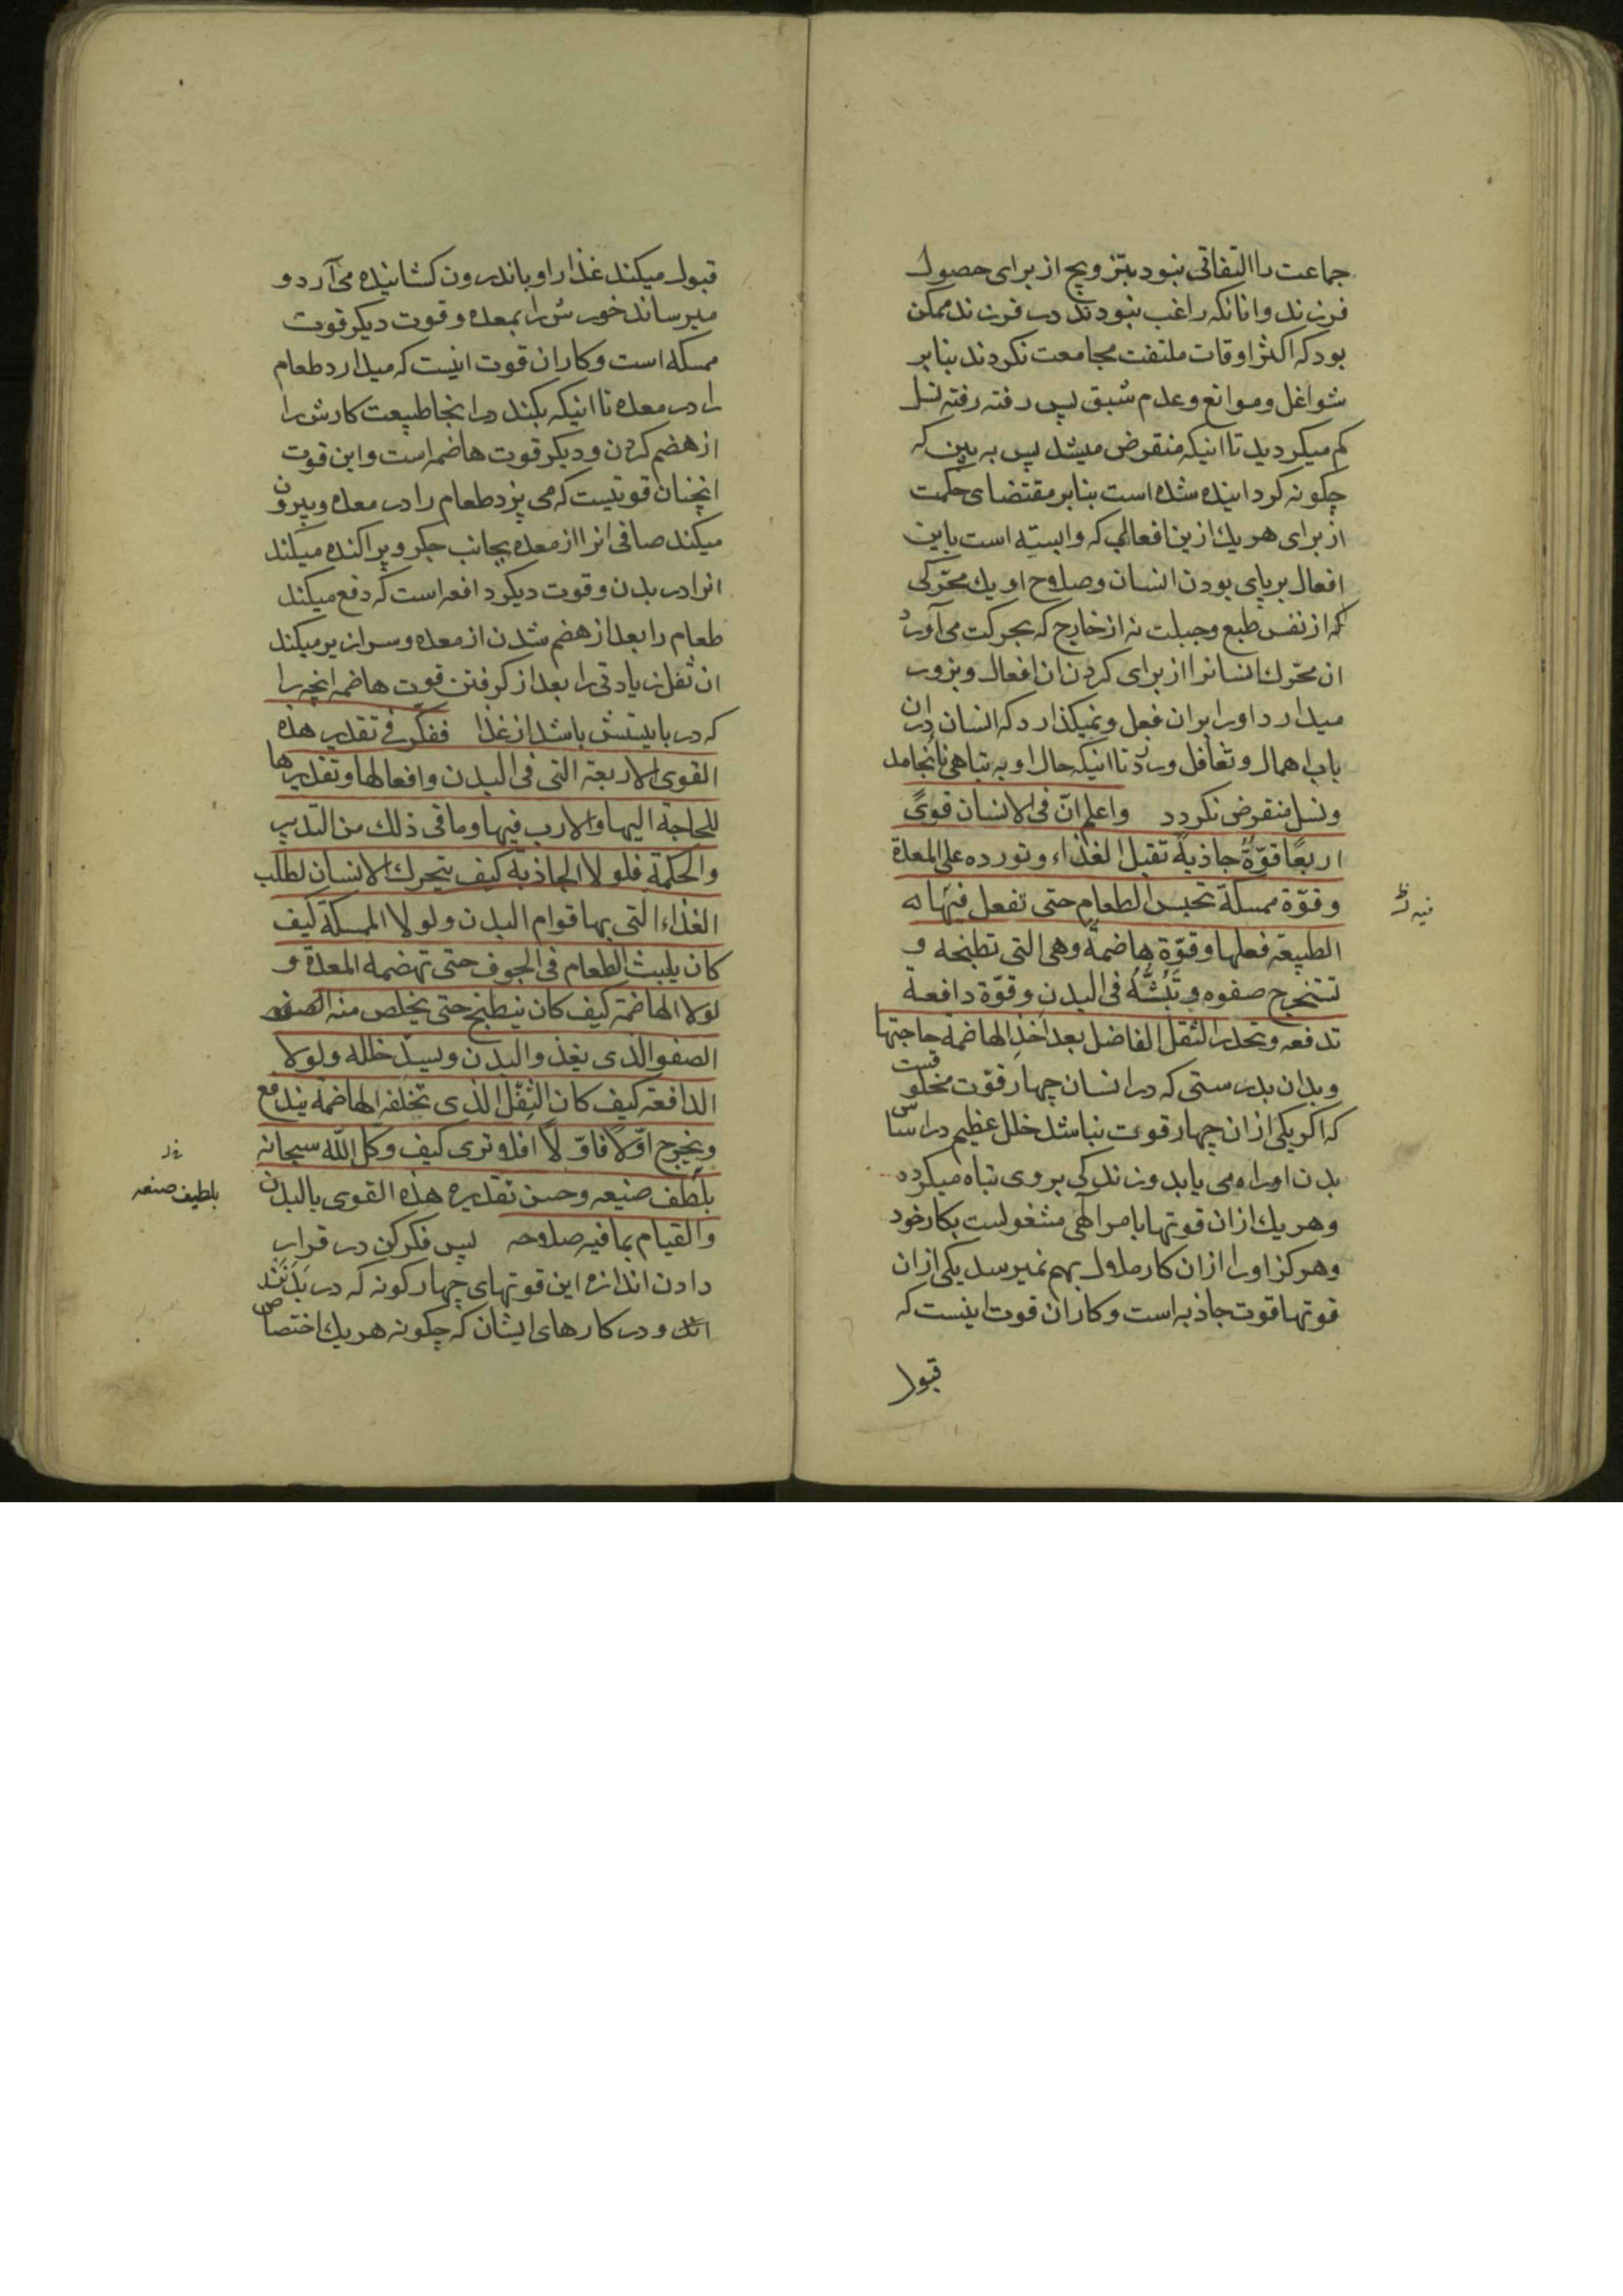 جماعت را التفاتی نبود بتزویج از برای حصول
فرزند و انانکه راغب نبودند در فرزند ممکن
بود که اکثر اوقات ملتفت مجامعت نکردند بنابر
شواغل و موانع و عدم شبق پس رفته رفته نسل
کم میکردید تا اینکه منقرض میشد پس به بین که
چکونه کردانیده شده است بنابر مقتضای حکمت
از برای هر یك ازین افعالی که وابسته است باین
افعال برپای بودن انسان و صلاح او یك محرّکی
که از نفس طبع و جبلت نه از خارج که بحرکت می آورد
ان محرّك انسانرا از برای کردن ان افعال و بزور
میدارد او را بران فعل و نمیکذارد که انسان دران
باب اهمال و تغافل ورزد تا اینکه حال او به تباهی نانجامد
و نسل منقرض نکردد واعلم انّ فی الانسان قویً
اربعًا قوّةٌ جاذبةٌ تقبل الغذاء و تورده علی المعدة
و قوّة ممسکة تحبس الطعام حتی تفعل فیهاله
فیه
الطبیعة فعلها و قوّة هاضمة وهی التی تطبخه و
تستخرج صفوه و تَبُثُّهُ فی البدن و قوّة دافعة
تدفعه و تحدر الثقل الفاضل بعد اخذ الهاضمة حاجتها
و بدان بدرستی که در انسان چهار قوّت مخلوقست
که اکر یکی ازان چهار قوت نباشد خلل عظیم در اساس
بدن او راه می یابد و زندکی بروی تباه میکردد
و هر یك ازان قوتها بامر الهی مشغولست بکار خود
و هرکز او را ازان کار ملال بهم نمیرسد یکی ازان
قوتها قوت جاذبه است و کاران قوت اینست که
قبول
قبول میکند غذا را و باندرون کشانیده می آرد و
میرساند خورش را بمعده و قوت دیکر قوت
ممسکه است و کاران قوت اینست که میدارد طعام
را در معده تا اینکه بکند در اینجا طبیعت کارش را
از هضم کردن و دیکر قوت هاضمه است و این قوت
انچنان قوتیست که می پزد طعام را در معده و بیرون
میکند صافی انرا از معده بجانب جکر و پراکنده میکند
انرا در بدن و قوت دیکر دافعه است که دفع میکند
طعام را بعد از هضم شدن از معده و سرازیر میکند
ان ثفل زیادتی را بعد از کرفتن قوت هاضمه انچه را
که در بایستش باشد از غذا ففکر فی تقدیر هذه
القوی الاربعة التی فی البدن و افعالها و تقدیرها
للحاجة الیها و الارب فیها و ما فی ذلك من التدبیر
و الحکمة فلولا الجاذبة کیف یتحرك الانسان لطلب
الغذاء التی بها قوام البدن و لولا الممسکة کیف
کان یلبث الطعام فی الجوف حتی تهضمه المعدة و
لولا الهاضمة کیف کان ینطبخ حتی یخلص منه
الصفو الذی یغذو البدن و یسدّ خلله و لولا
الدافعة کیف کان الثِفْل الذی تخلفه الهاضمة یندفع
و یخرج اوّلاً فاوّلاً افلا و تری کیف وکل الله سبحانه
بلطف صنیعه و حسن تقدیره هذه القوی بالبدن
بلطیف صنعه
و القیام بما فیه صلاحه پس فکر کن در قرار
دادن اندازه این قوتهای چهار کونه که در بدنند
و در کارهای ایشان که چکونه هر یك اختصاص